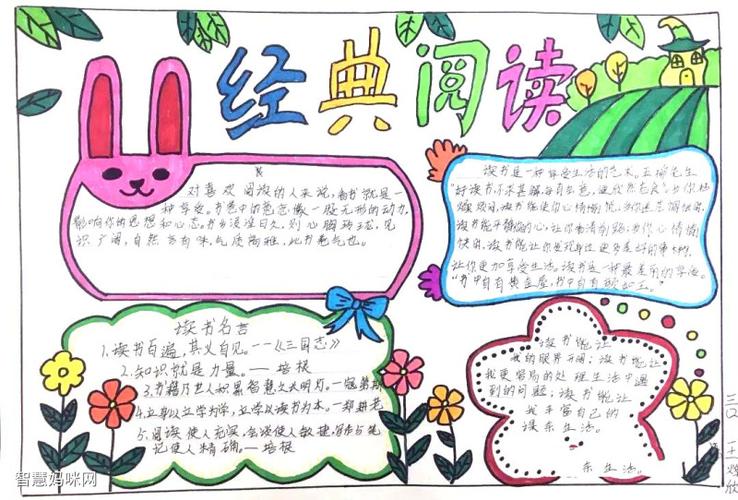 经典阅读
对喜欢阅读的人来说，看书就是一
种享受。书卷中的意志像一股无形的动力，
影响你的思想和心志。书香浸淫日久，则心胸
识广阔，自然言有味，气质高雅，此书卷气也。
读书是一种享受生活的艺术。五柳先生
"好读书，不求甚解，每有会意，便欣然忘食"。当你
读书能使你心情愉悦；当你迷茫惆怅时，
读书能平静你的心，让你看清前路；当你心情愉
快时，读书能让你发现身边更多美好的事物，
让你更加享受生活。读书是一种最美丽的享受。
"书中自有黄金屋，书中自有颜如玉。"
读书名言
1、读书百遍，其义自见。——《三国志》
2.知识就是力量。——培根
3.书籍乃世人积累智慧之长明灯。—寇第斯
4.立身以立学为先，立学以读书为本。—欧阳
5、阅读使人充实，会谈使人敏捷，写作与笔
记使人精确。—培根
读书能让
我的眼界开阔；读书能让
我更容易的处理生活中遇
到的问题；读书能让
我丰富自己的
娱乐生活。
乐生活。
三
王
欣
智慧妈咪网